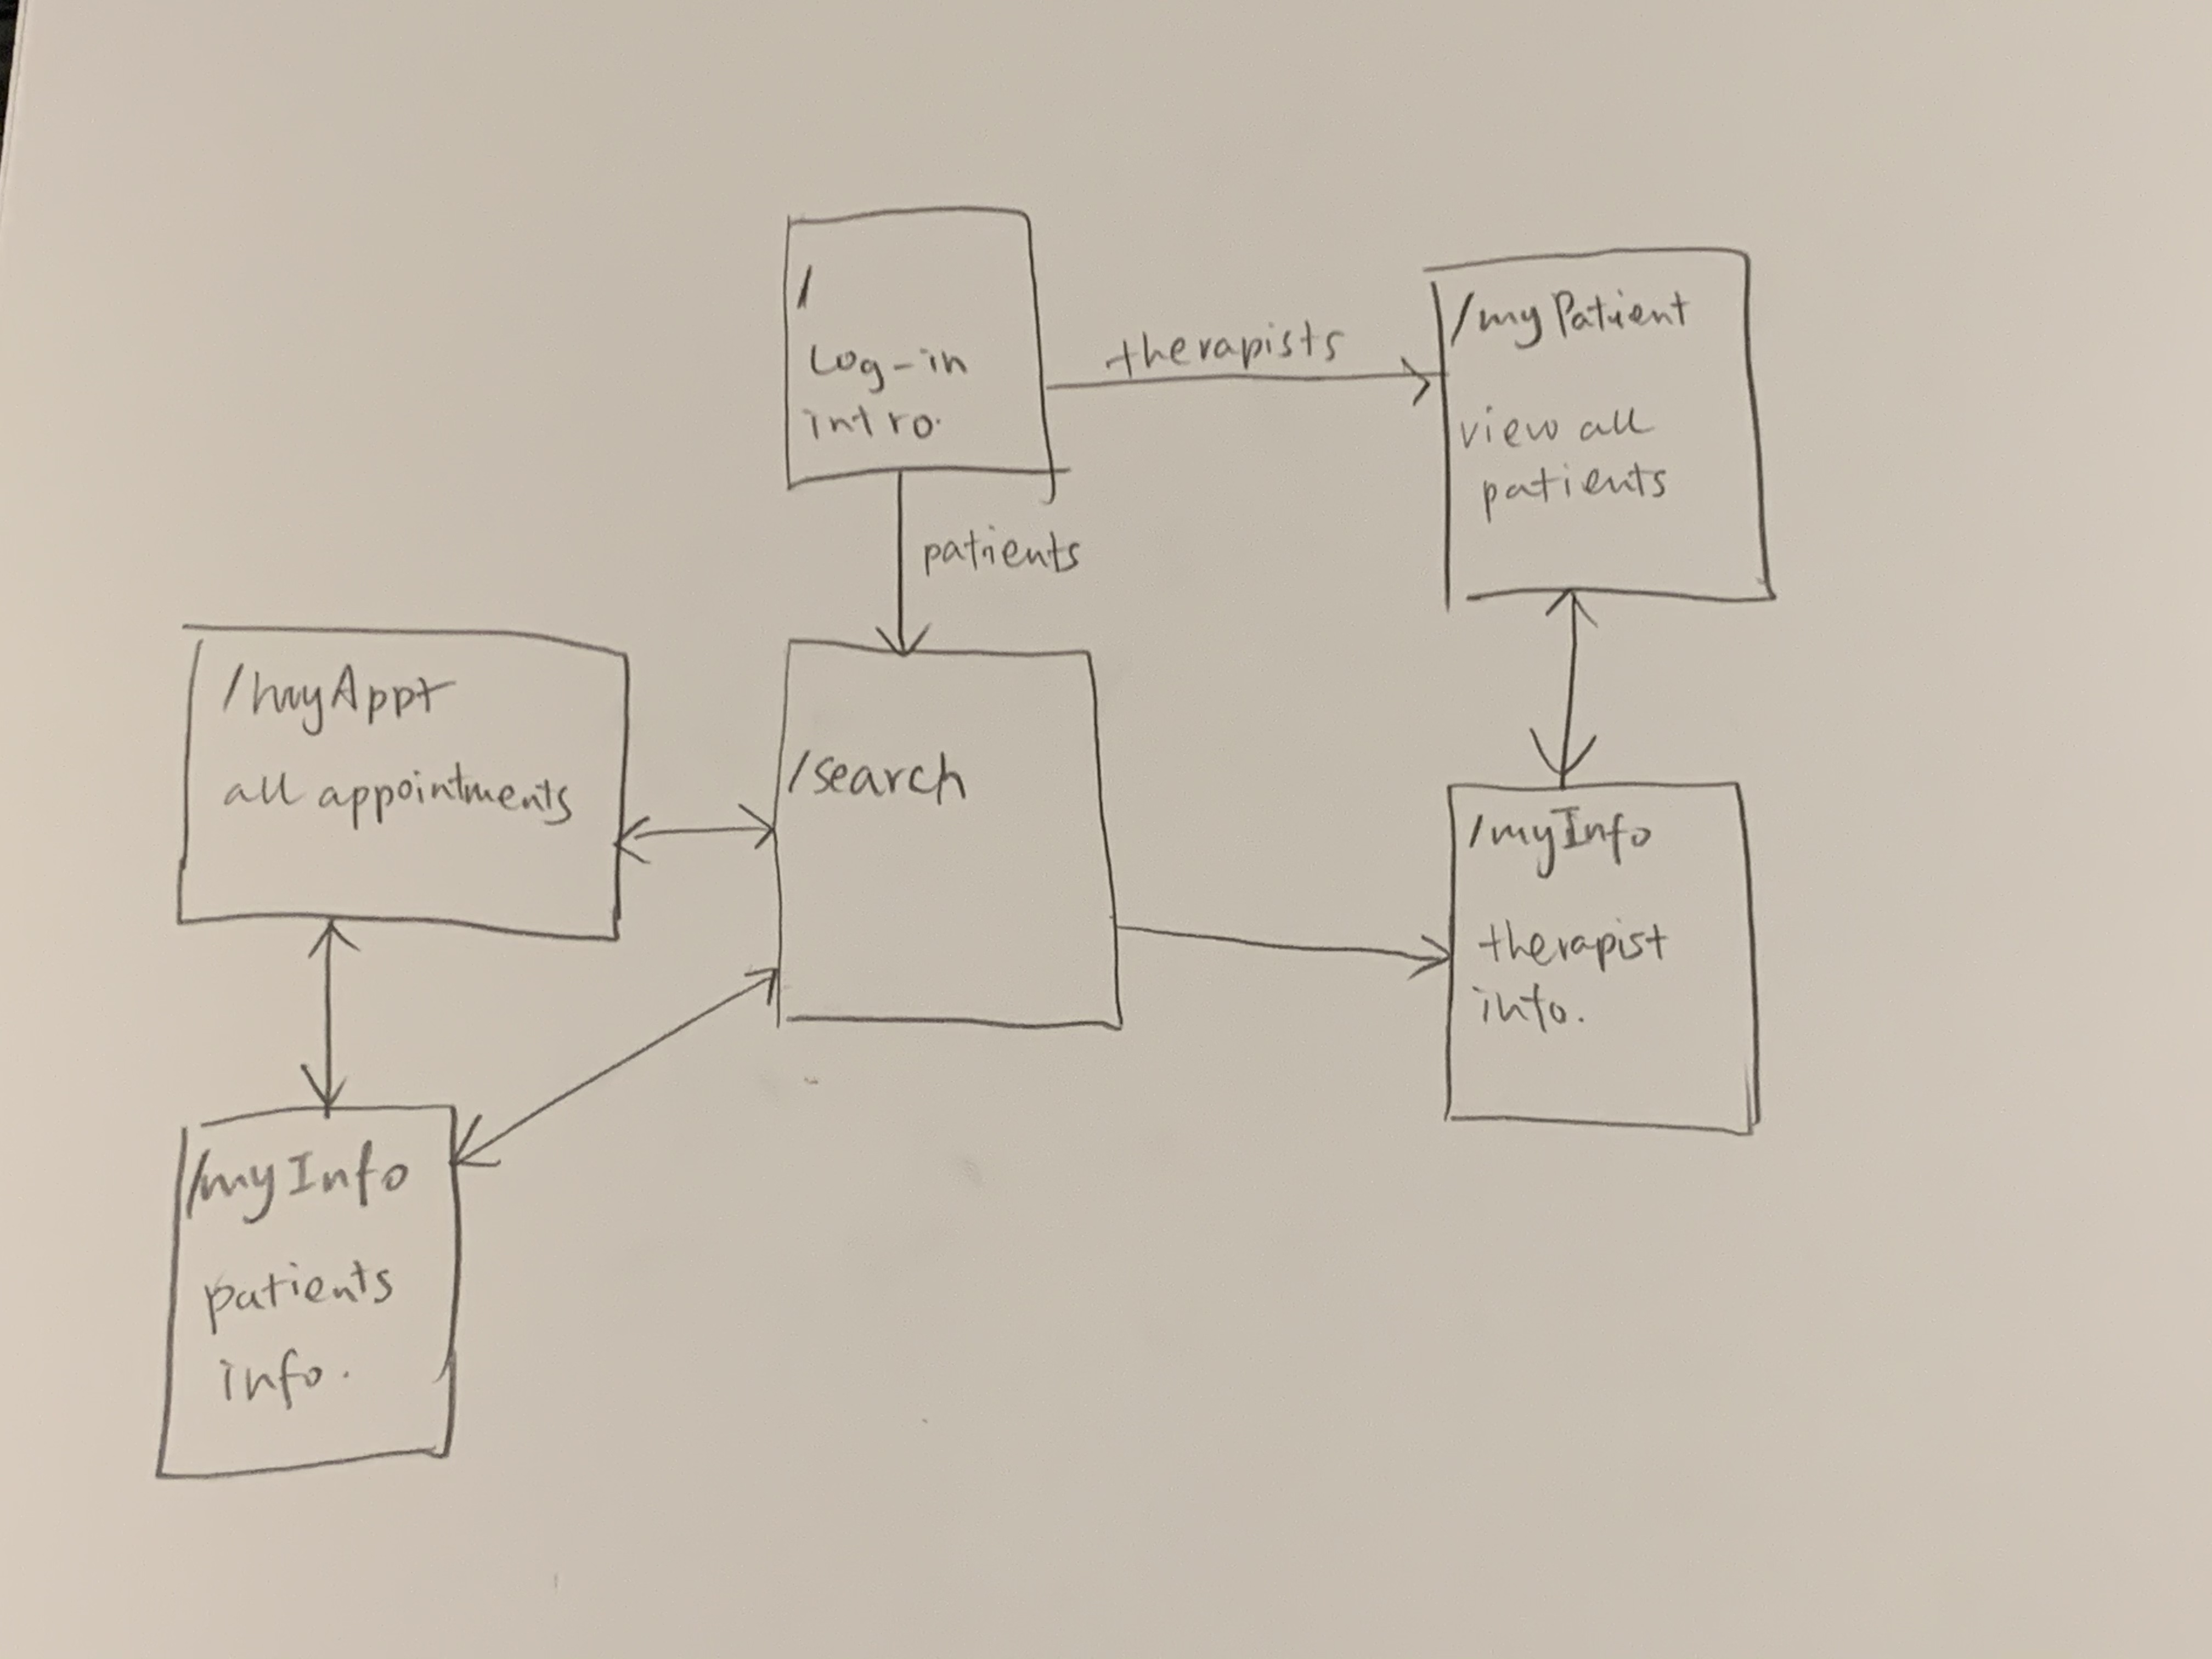 /
Log-in
intro.
therapists
/myPatient
view all
patients
patients
/myAppt
all appointments
/search
/myInfo
therapist
info.
/myInfo
patients
info.